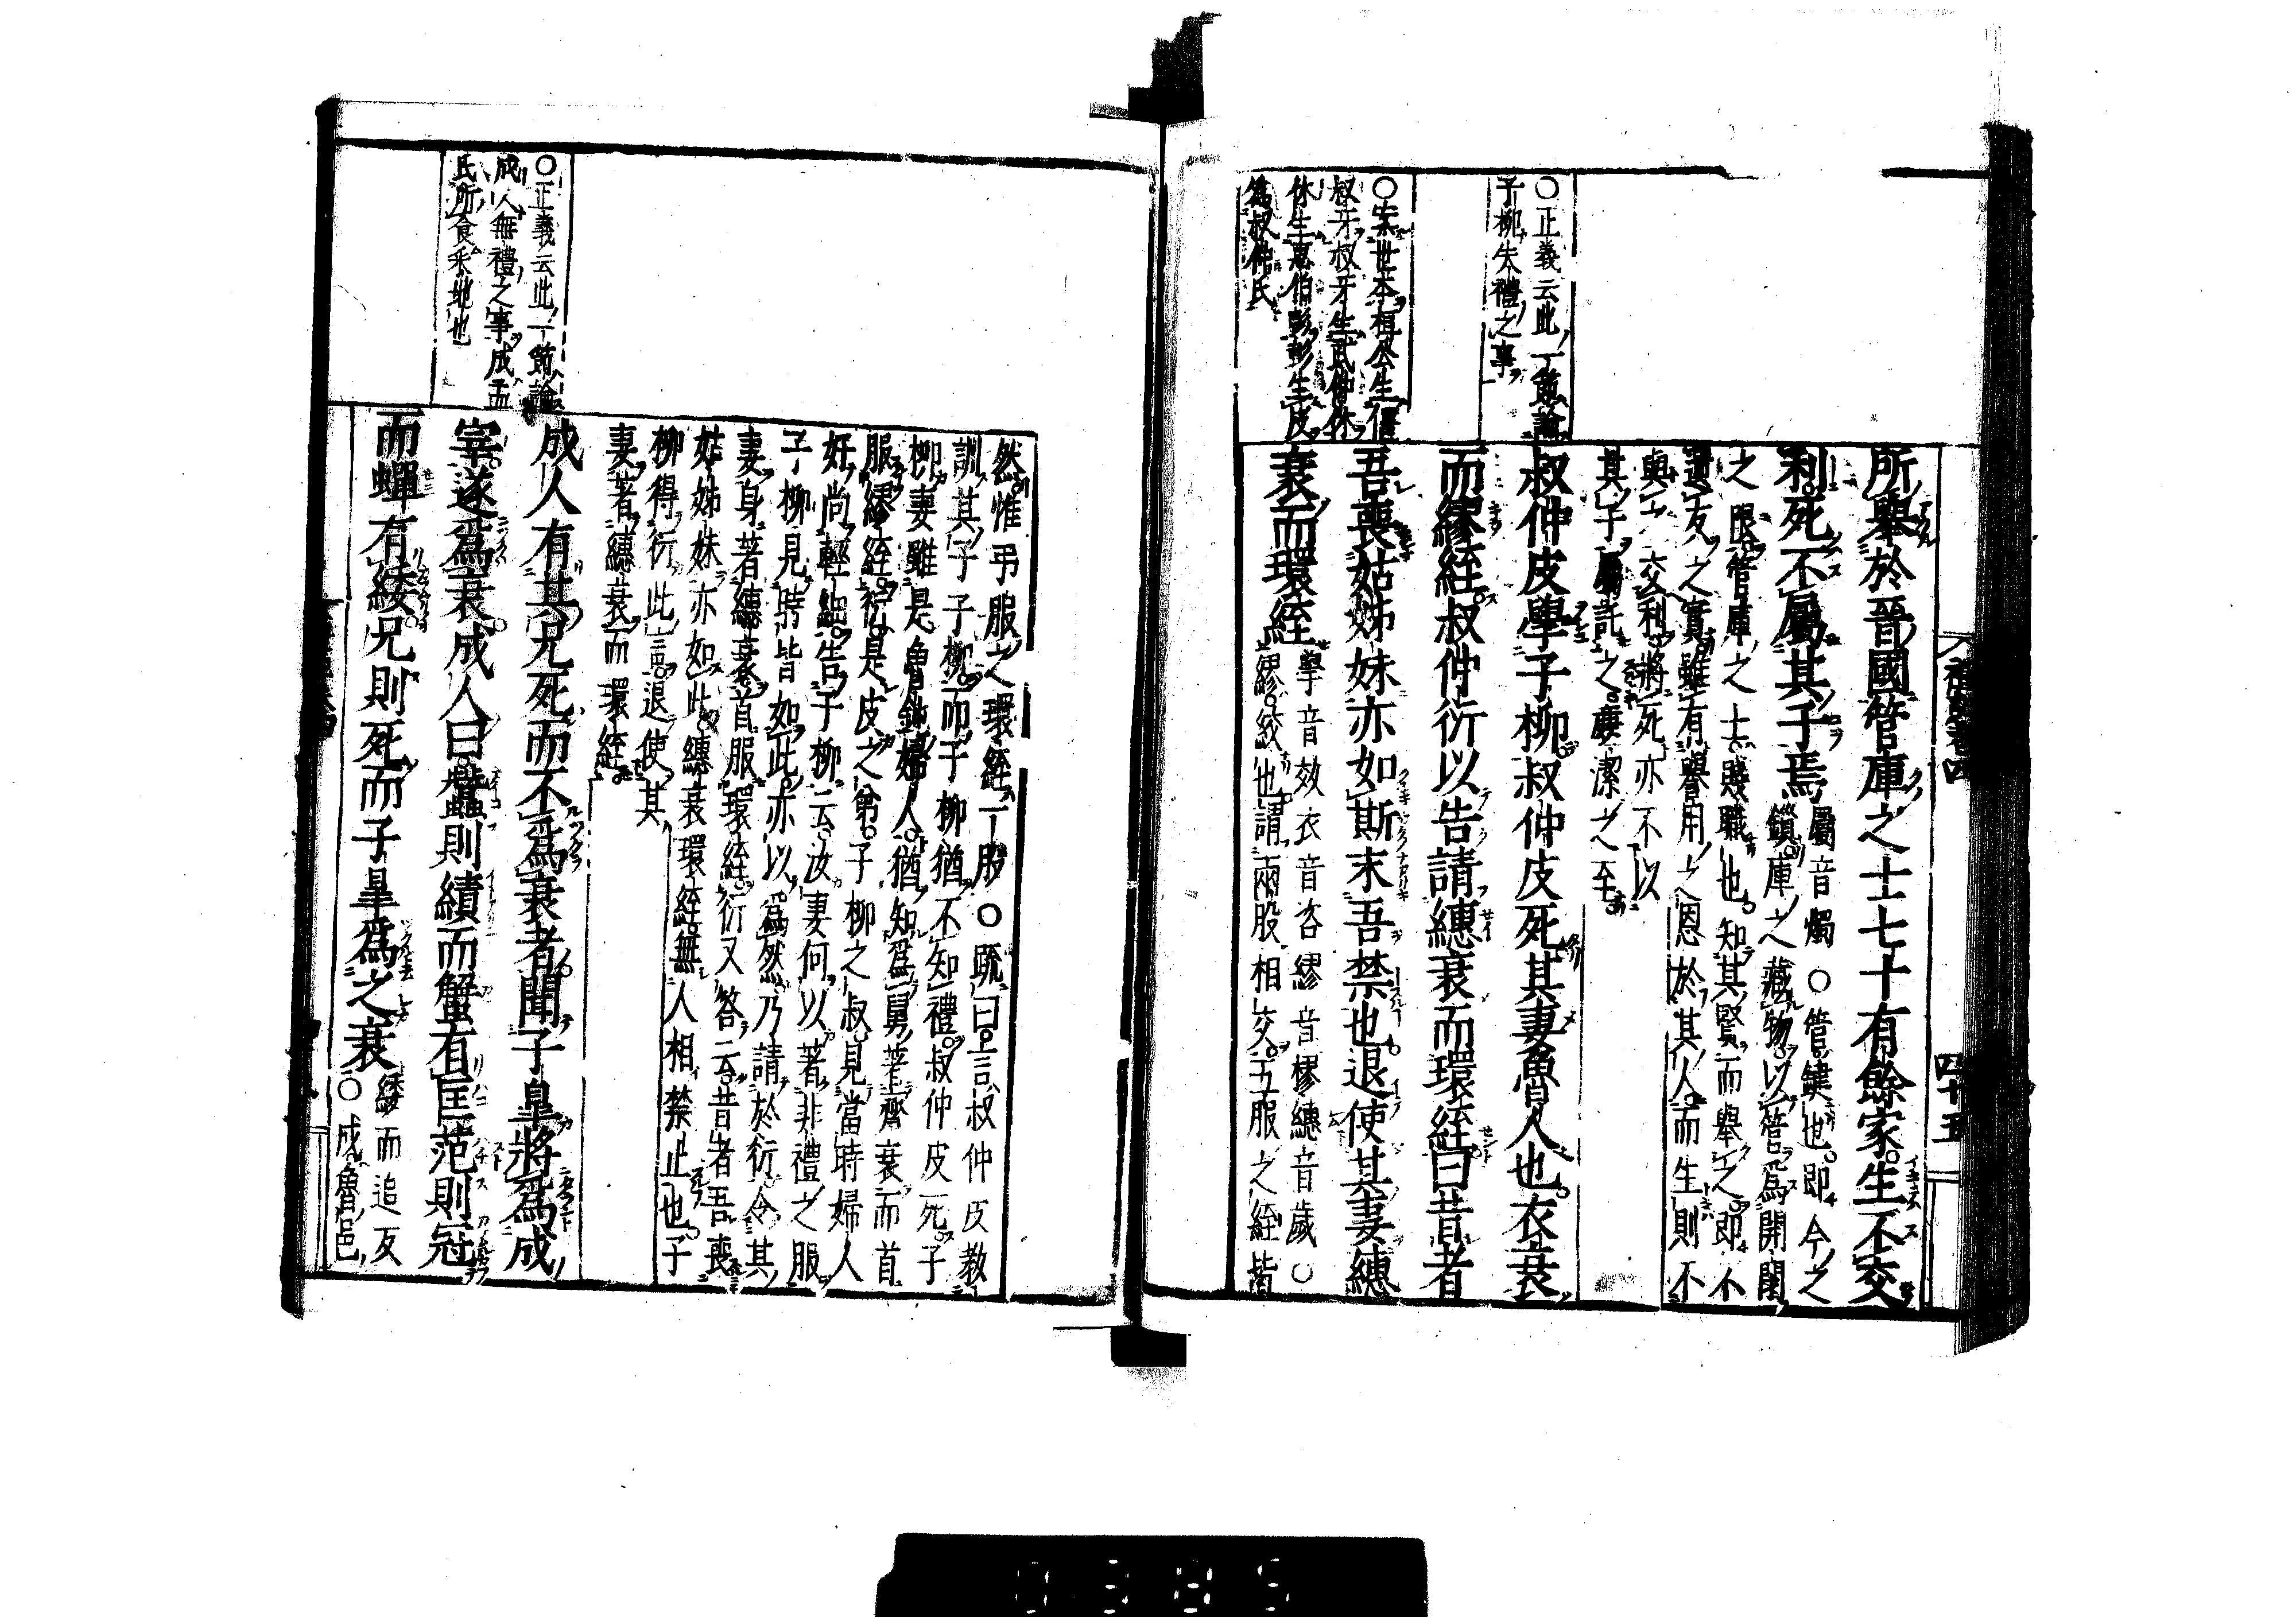 ○正義云此一節論
子柳失禮之事
○案世本桓公生僖
叔牙叔牙生武仲休
休生惠伯彭彭生皮
為叔仲氏
所舉於晉國管庫之士七十有餘家生不交
利死不屬其子焉
屬音燭○管鍵也即今之
鎖庫之藏物以管爲開閉
之限管庫之士賤職也知其賢而舉之即不
遺友之實雖有舉用之恩於其人而生則不
與之交利將死亦不以
其子屬託之廉潔之至
叔仲皮學子柳叔仲皮死其妻魯人也衣衰
而繆絰叔仲衍以告請繐衰而環絰曰昔者
吾喪姑姊妹亦如斯末吾禁也退使其妻繐
衰而環絰
學音效衣音咨繆音樛繐音歲○
繆絞也謂兩股相交五服之絰皆
然惟弔服之環絰一股○疏曰言叔仲皮教
訓其子子柳而子柳猶不知禮叔仲皮死子
柳妻雖是魯鈍婦人猶知爲舅著齊衰而首
服繆絰衍是皮之弟子柳之叔見當時婦人
好尚輕細告子柳云汝妻何以著非禮之服
子柳見時皆如此亦以爲然乃請於衍令其
妻身著繐衰首服環絰衍又答云昔者吾喪
姑姊妹亦如此繐衰環絰無人相禁止也子
柳得衍此言退使其
妻著繐衰而環絰
○正義云此一節論
成人無禮之事成孟
氏所食采地也
成人有其兄死而不爲衰者聞子皐將爲成
宰遂爲衰成人曰蠶則績而蟹有匡范則冠
而蟬有緌兄則死而子皐爲之衰
緌而追反
○成魯邑
四十五